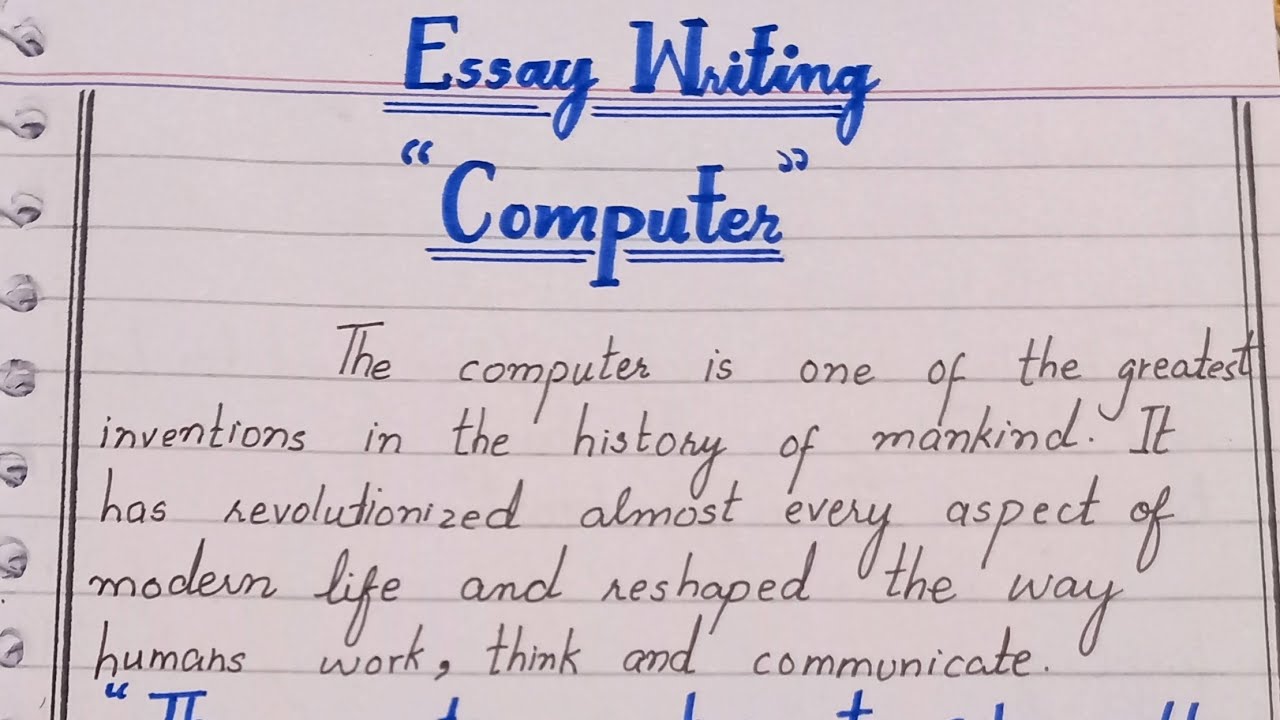 Essay Writing
"Computer"
The computer is one of the greatest
inventions in the history of mankind. It
has revolutionized almost every aspect of
modern life and reshaped the way
humans work, think and communicate.